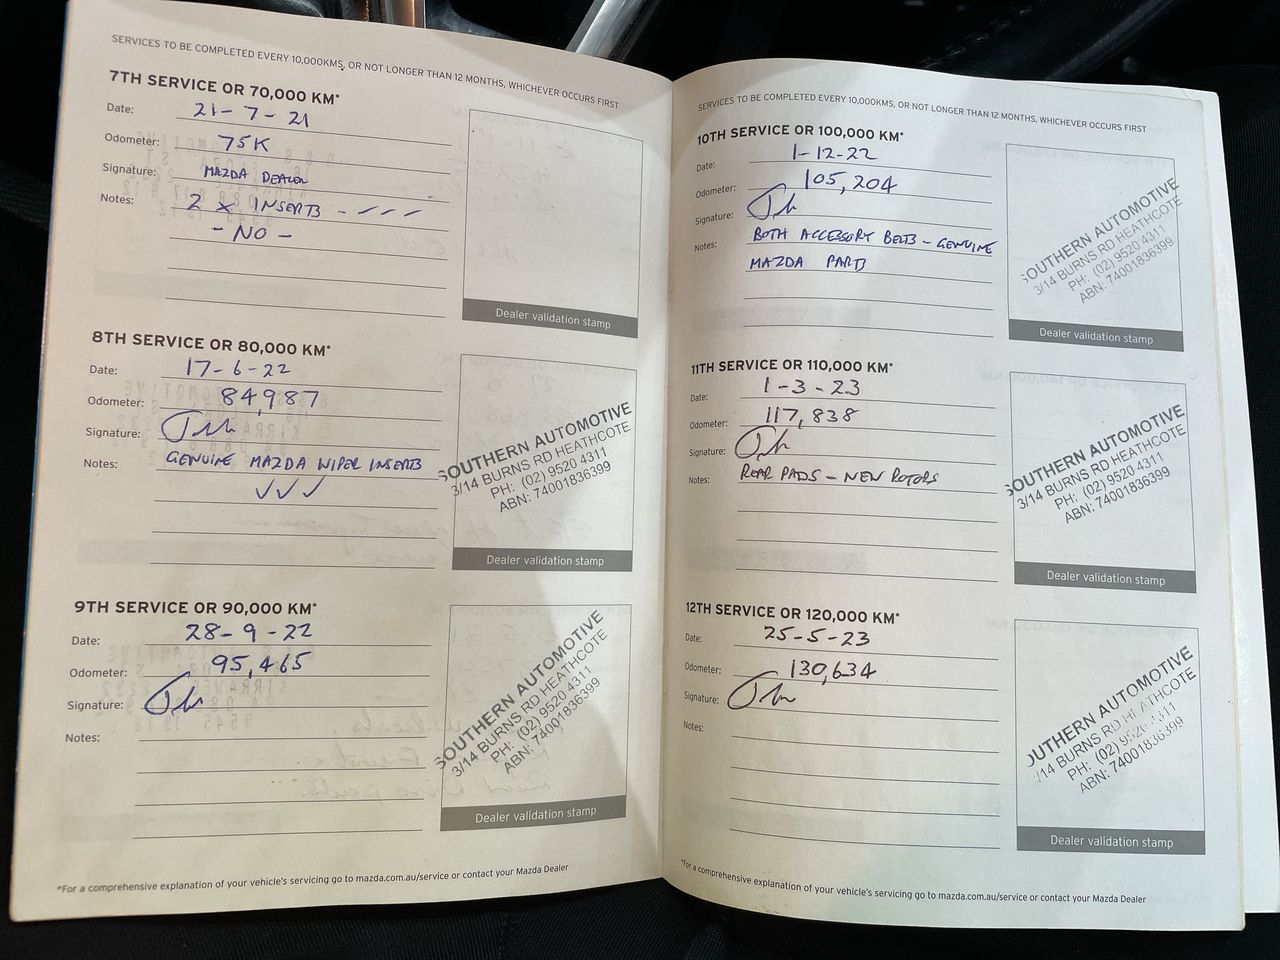 SERVICES TO BE COMPLETED EVERY 10,000KMS, OR NOT LONGER THAN 12 MONTHS, WHICHEVER OCCURS FIRST
7TH SERVICE OR 70,000 KM*
Date: 21-7-21
Odometer: 75K
Signature: MAZDA DEALER
Notes: 2 x INSERTS - ✓✓✓
- NO -
Dealer validation stamp
8TH SERVICE OR 80,000 KM*
Date: 17-6-22
Odometer: 84,987
Signature:
Notes: GENUINE MAZDA WIPER INSERTS
✓✓✓
SOUTHERN AUTOMOTIVE
3/14 BURNS RD HEATHCOTE
PH: (02) 9520 4311
ABN: 74001836399
Dealer validation stamp
9TH SERVICE OR 90,000 KM*
Date: 28-9-22
Odometer: 95,465
Signature:
Notes:
SOUTHERN AUTOMOTIVE
3/14 BURNS RD HEATHCOTE
PH: (02) 9520 4311
ABN: 74001836399
Dealer validation stamp
*For a comprehensive explanation of your vehicle's servicing go to mazda.com.au/service or contact your Mazda Dealer
SERVICES TO BE COMPLETED EVERY 10,000KMS, OR NOT LONGER THAN 12 MONTHS, WHICHEVER OCCURS FIRST
10TH SERVICE OR 100,000 KM*
Date: 1-12-22
Odometer: 105,204
Signature:
Notes: BOTH ACCESSORY BELTS - GENUINE
MAZDA PARTS
SOUTHERN AUTOMOTIVE
3/14 BURNS RD HEATHCOTE
PH: (02) 9520 4311
ABN: 74001836399
Dealer validation stamp
11TH SERVICE OR 110,000 KM*
Date: 1-3-23
Odometer: 117,838
Signature:
Notes: REAR PADS - NEW ROTORS
SOUTHERN AUTOMOTIVE
3/14 BURNS RD HEATHCOTE
PH: (02) 9520 4311
ABN: 74001836399
Dealer validation stamp
12TH SERVICE OR 120,000 KM*
Date: 25-5-23
Odometer: 130,634
Signature:
Notes:
OUTHERN AUTOMOTIVE
/14 BURNS RD HEATHCOTE
PH: (02) 9520 4311
ABN: 74001836399
Dealer validation stamp
*For a comprehensive explanation of your vehicle's servicing go to mazda.com.au/service or contact your Mazda Dealer